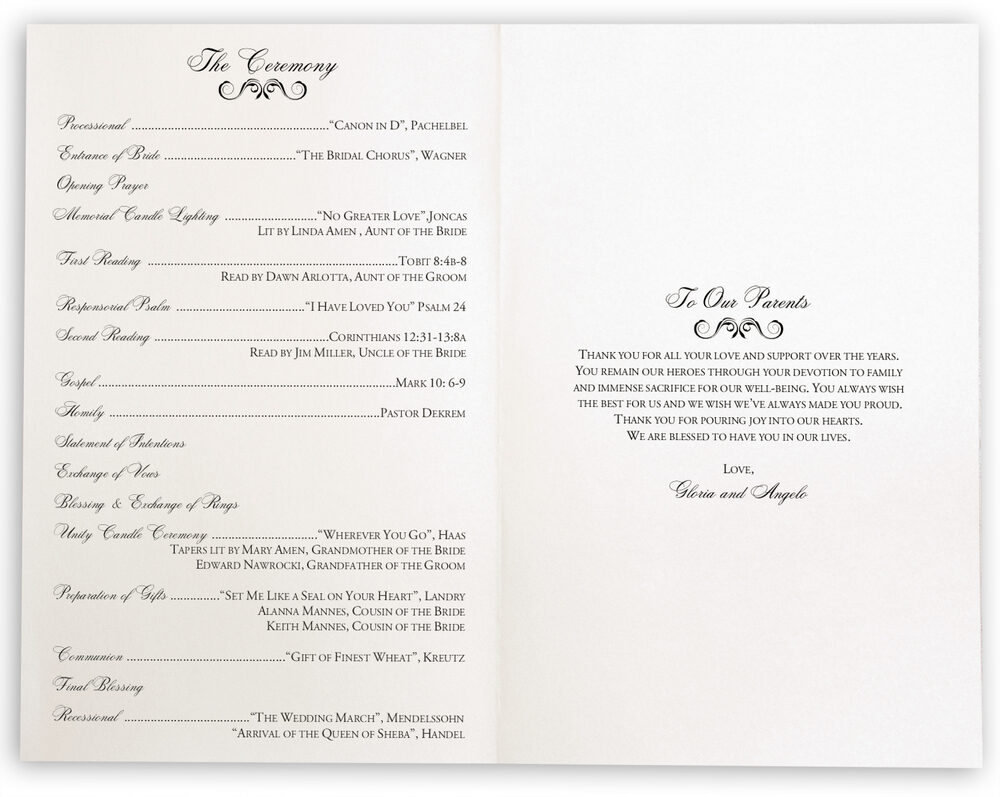 The Ceremony
Processional ............................................................"CANON IN D", PACHELBEL
Entrance of Bride ........................................"THE BRIDAL CHORUS", WAGNER
Opening Prayer
Memorial Candle Lighting ............................"NO GREATER LOVE",JONCAS
LIT BY LINDA AMEN , AUNT OF THE BRIDE
First Reading ............................................................................TOBIT 8:4B-8
READ BY DAWN ARLOTTA, AUNT OF THE GROOM
Responsorial Psalm ......................................."I HAVE LOVED YOU" PSALM 24
Second Reading ......................................................CORINTHIANS 12:31-13:8A
READ BY JIM MILLER, UNCLE OF THE BRIDE
Gospel..........................................................................................MARK 10: 6-9
Homily ..................................................................................PASTOR DEKREM
Statement of Intentions
Exchange of Vows
Blessing & Exchange of Rings
Unity Candle Ceremony ................................"WHEREVER YOU GO", HAAS
TAPERS LIT BY MARY AMEN, GRANDMOTHER OF THE BRIDE
EDWARD NAWROCKI, GRANDFATHER OF THE GROOM
Preparation of Gifts ..............."SET ME LIKE A SEAL ON YOUR HEART", LANDRY
ALANNA MANNES, COUSIN OF THE BRIDE
KEITH MANNES, COUSIN OF THE BRIDE
Communion ................................................"GIFT OF FINEST WHEAT", KREUTZ
Final Blessing
Recessional ......................................"THE WEDDING MARCH", MENDELSSOHN
"ARRIVAL OF THE QUEEN OF SHEBA", HANDEL
To Our Parents
THANK YOU FOR ALL YOUR LOVE AND SUPPORT OVER THE YEARS.
YOU REMAIN OUR HEROES THROUGH YOUR DEVOTION TO FAMILY
AND IMMENSE SACRIFICE FOR OUR WELL-BEING. YOU ALWAYS WISH
THE BEST FOR US AND WE WISH WE'VE ALWAYS MADE YOU PROUD.
THANK YOU FOR POURING JOY INTO OUR HEARTS.
WE ARE BLESSED TO HAVE YOU IN OUR LIVES.
LOVE,
Gloria and Angelo